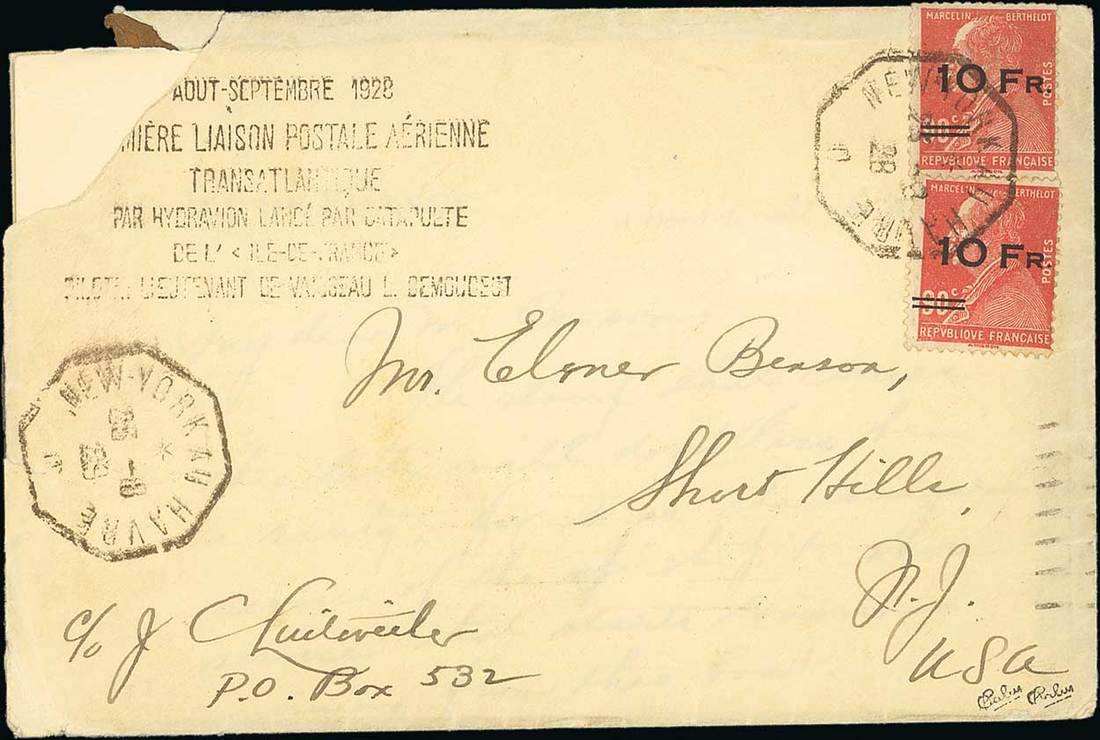 AOUT-SEPTEMBRE 1928
MIÈRE LIAISON POSTALE AÉRIENNE
TRANSATLANTIQUE
PAR HYDRAVION LANCÉ PAR CATAPULTE
DE L' « ILE-DE-FRANCE »
PILOTE: LIEUTENANT DE VAISSEAU L. DEMOUGEOT
MARCELIN BERTHELOT
10 FR
90c
POSTES
REPVBLIQUE FRANÇAISE
NEW-YORK AU HAVRE
28
MARCELIN BERTHELOT
10 FR
90c
POSTES
REPVBLIQUE FRANÇAISE
NEW-YORK AU HAVRE
Mr. Elmer Benson,
Short Hills,
N.J.
USA
c/o J
P.O. Box 532